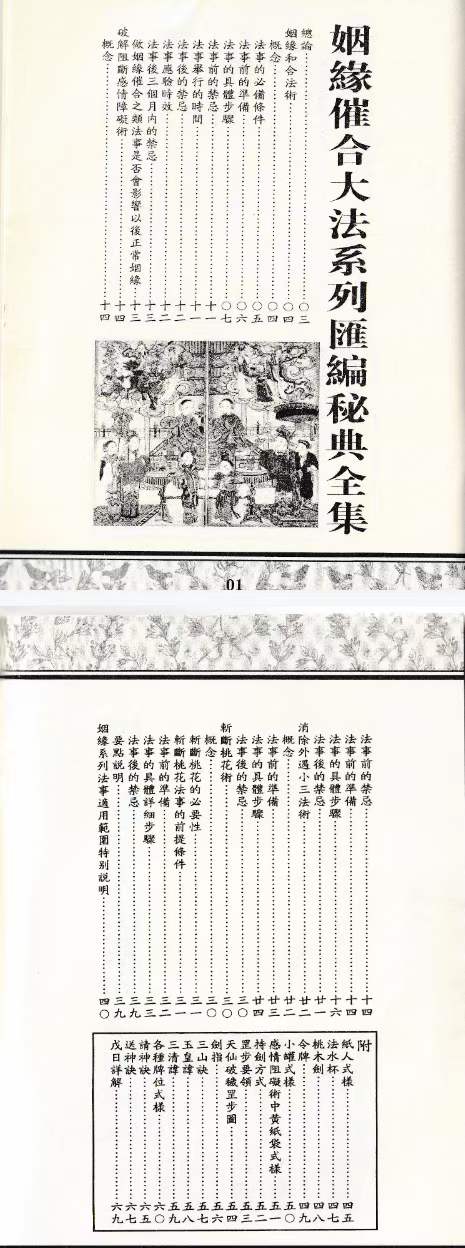 姻緣催合大法系列匯編秘典全集
總論⋯⋯○三
姻緣和合法術⋯⋯○四
概念⋯⋯○四
法事的必備條件⋯⋯○五
法事前的準備⋯⋯○六
法事的具體步驟⋯⋯○七
法事前的禁忌⋯⋯十一
法事舉行的時間⋯⋯十一
法事後的禁忌⋯⋯十二
法事應驗時效⋯⋯十二
法事後三個月內的禁忌⋯⋯十三
做姻緣催合之類法事是否會影響以後正常姻緣⋯⋯十三
破解阻斷感情障礙術⋯⋯十四
概念⋯⋯十四
01
法事前的禁忌⋯⋯十四
法事前的準備⋯⋯十四
法事的具體步驟⋯⋯十六
法事後的禁忌⋯⋯廿一
消除外遇小三法術⋯⋯廿二
概念⋯⋯廿二
法事前的準備⋯⋯廿三
法事的具體步驟⋯⋯廿四
法事後的禁忌⋯⋯三○
斬斷桃花術⋯⋯三○
概念⋯⋯三○
斬斷桃花的必要性⋯⋯三一
斬斷桃花法事的前提條件⋯⋯三一
法事前的準備⋯⋯三二
法事的具體詳細步驟⋯⋯三三
法事後的禁忌⋯⋯三九
要點説明⋯⋯三九
姻緣系列法事適用範圍特别説明⋯⋯四○
附
紙人式樣⋯⋯四五
法水杯⋯⋯四七
桃木劍⋯⋯四八
令牌⋯⋯四九
小罐式樣⋯⋯五○
感情阻礙術中黄紙袋式樣⋯⋯五一
持劍方式⋯⋯五二
罡步要領⋯⋯五三
天仙破穢罡步圖⋯⋯五四
劍指⋯⋯五五
三山訣⋯⋯五七
玉皇諱⋯⋯五八
三清諱⋯⋯五九
各種牌位式樣⋯⋯六○
請神訣⋯⋯六五
送神訣⋯⋯六七
戊日詳解⋯⋯六九